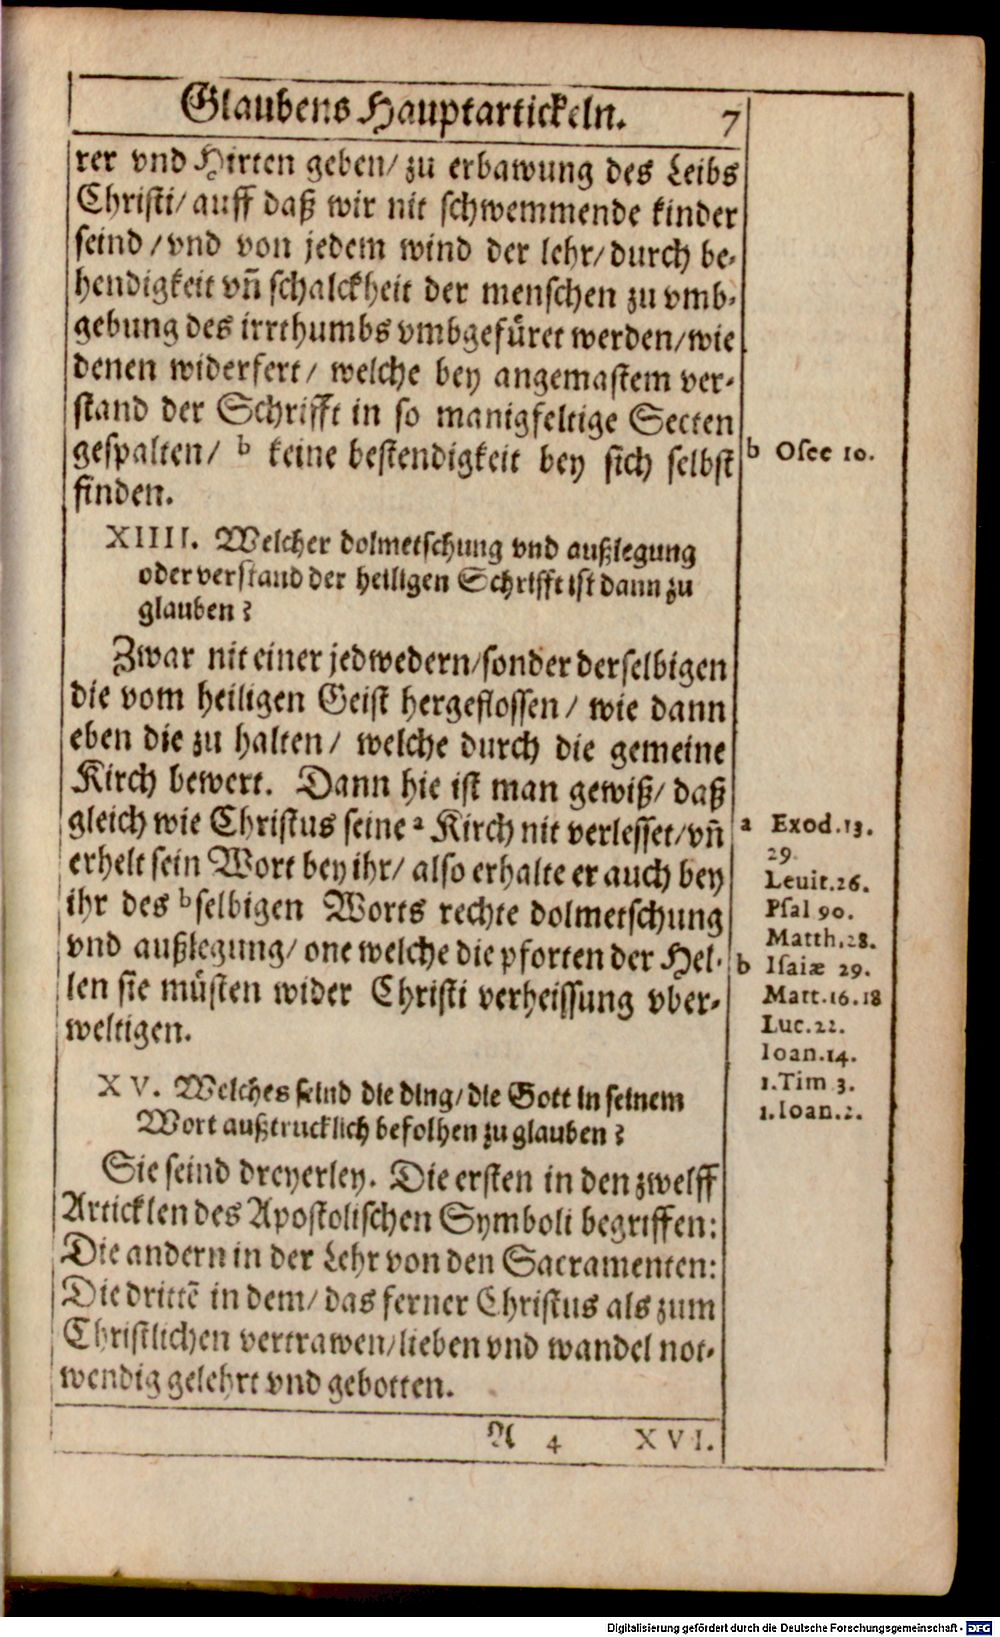 Glaubens Hauptartickeln. 7
rer vnd Hirten geben/ zu erbawung des Leibs
Christi/ auff daß wir nit schwemmende kinder
seind /vnd von jedem wind der lehr/ durch be-
hendigkeit vñ schalckheit der menschen zu vmb-
gebung des irrthumbs vmbgefüret werden/wie
denen widerfert/ welche bey angemastem ver-
stand der Schrifft in so manigfeltige Secten
gespalten/ b keine bestendigkeit bey sich selbst
finden.
b Osee 10.
XIIII. Welcher dolmetschung vnd außlegung
oder verstand der heiligen Schrifft ist dann zu
glauben?
Zwar nit einer jedwedern/sonder derselbigen
die vom heiligen Geist hergeflossen/ wie dann
eben die zu halten/ welche durch die gemeine
Kirch bewert. Dann hie ist man gewiß/ daß
gleich wie Christus seine a Kirch nit verlesset/vñ
erhelt sein Wort bey ihr/ also erhalte er auch bey
ihr des b selbigen Worts rechte dolmetschung
vnd außlegung/ one welche die pforten der Hel-
len sie müsten wider Christi verheissung vber-
weltigen.
a Exod.13.
29.
Leuit.26.
Psal 90.
Matth.28.
b Isaiæ 29.
Matt.16.18
Luc.22.
Ioan.14.
1.Tim 3.
1.Ioan.2.
XV. Welches seind die ding/die Gott in seinem
Wort außtrucklich befolhen zu glauben?
Sie seind dreyerley. Die ersten in den zwelff
Articklen des Apostolischen Symboli begriffen:
Die andern in der Lehr von den Sacramenten:
Die drittē in dem/ das ferner Christus als zum
Christlichen vertrawen/lieben vnd wandel not-
wendig gelehrt vnd gebotten.
A 4 XVI.
Digitalisierung gefördert durch die Deutsche Forschungsgemeinschaft - DFG